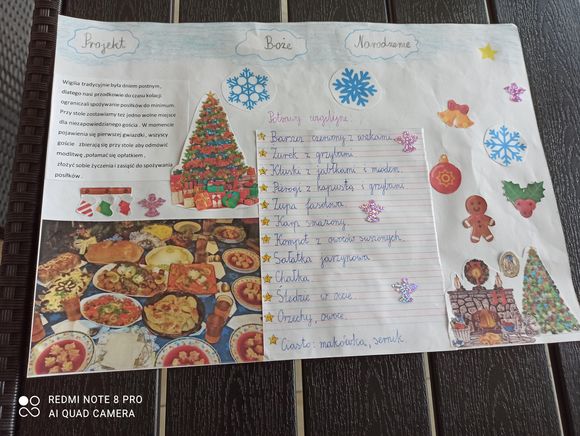 Projekt Boże Narodzenie
Wigilia tradycyjnie była dniem postnym,
dlatego nasi przodkowie do czasu kolacji
ograniczali spożywanie posiłków do minimum.
Przy stole zostawiamy też jedno wolne miejsce
dla niezapowiedzianego gościa. W momencie
pojawienia się pierwszej gwiazdki, wszyscy
goście zbierają się przy stole aby odmówić
modlitwę, połamać się opłatkiem,
złożyć sobie życzenia i zasiąść do spożywania
posiłków.
Potrawy wigilijne:
Barszcz czerwony z uszkami
Żurek z grzybami
Kluski z jabłkami i miodem
Pierogi z kapustą i grzybami
Zupa fasolowa
Karp smażony
Kompot z owoców suszonych
Sałatka jarzynowa
Chałka
Śledzie w occie
Orzechy, owoce
Ciasto: makówka, sernik
REDMI NOTE 8 PRO
AI QUAD CAMERA